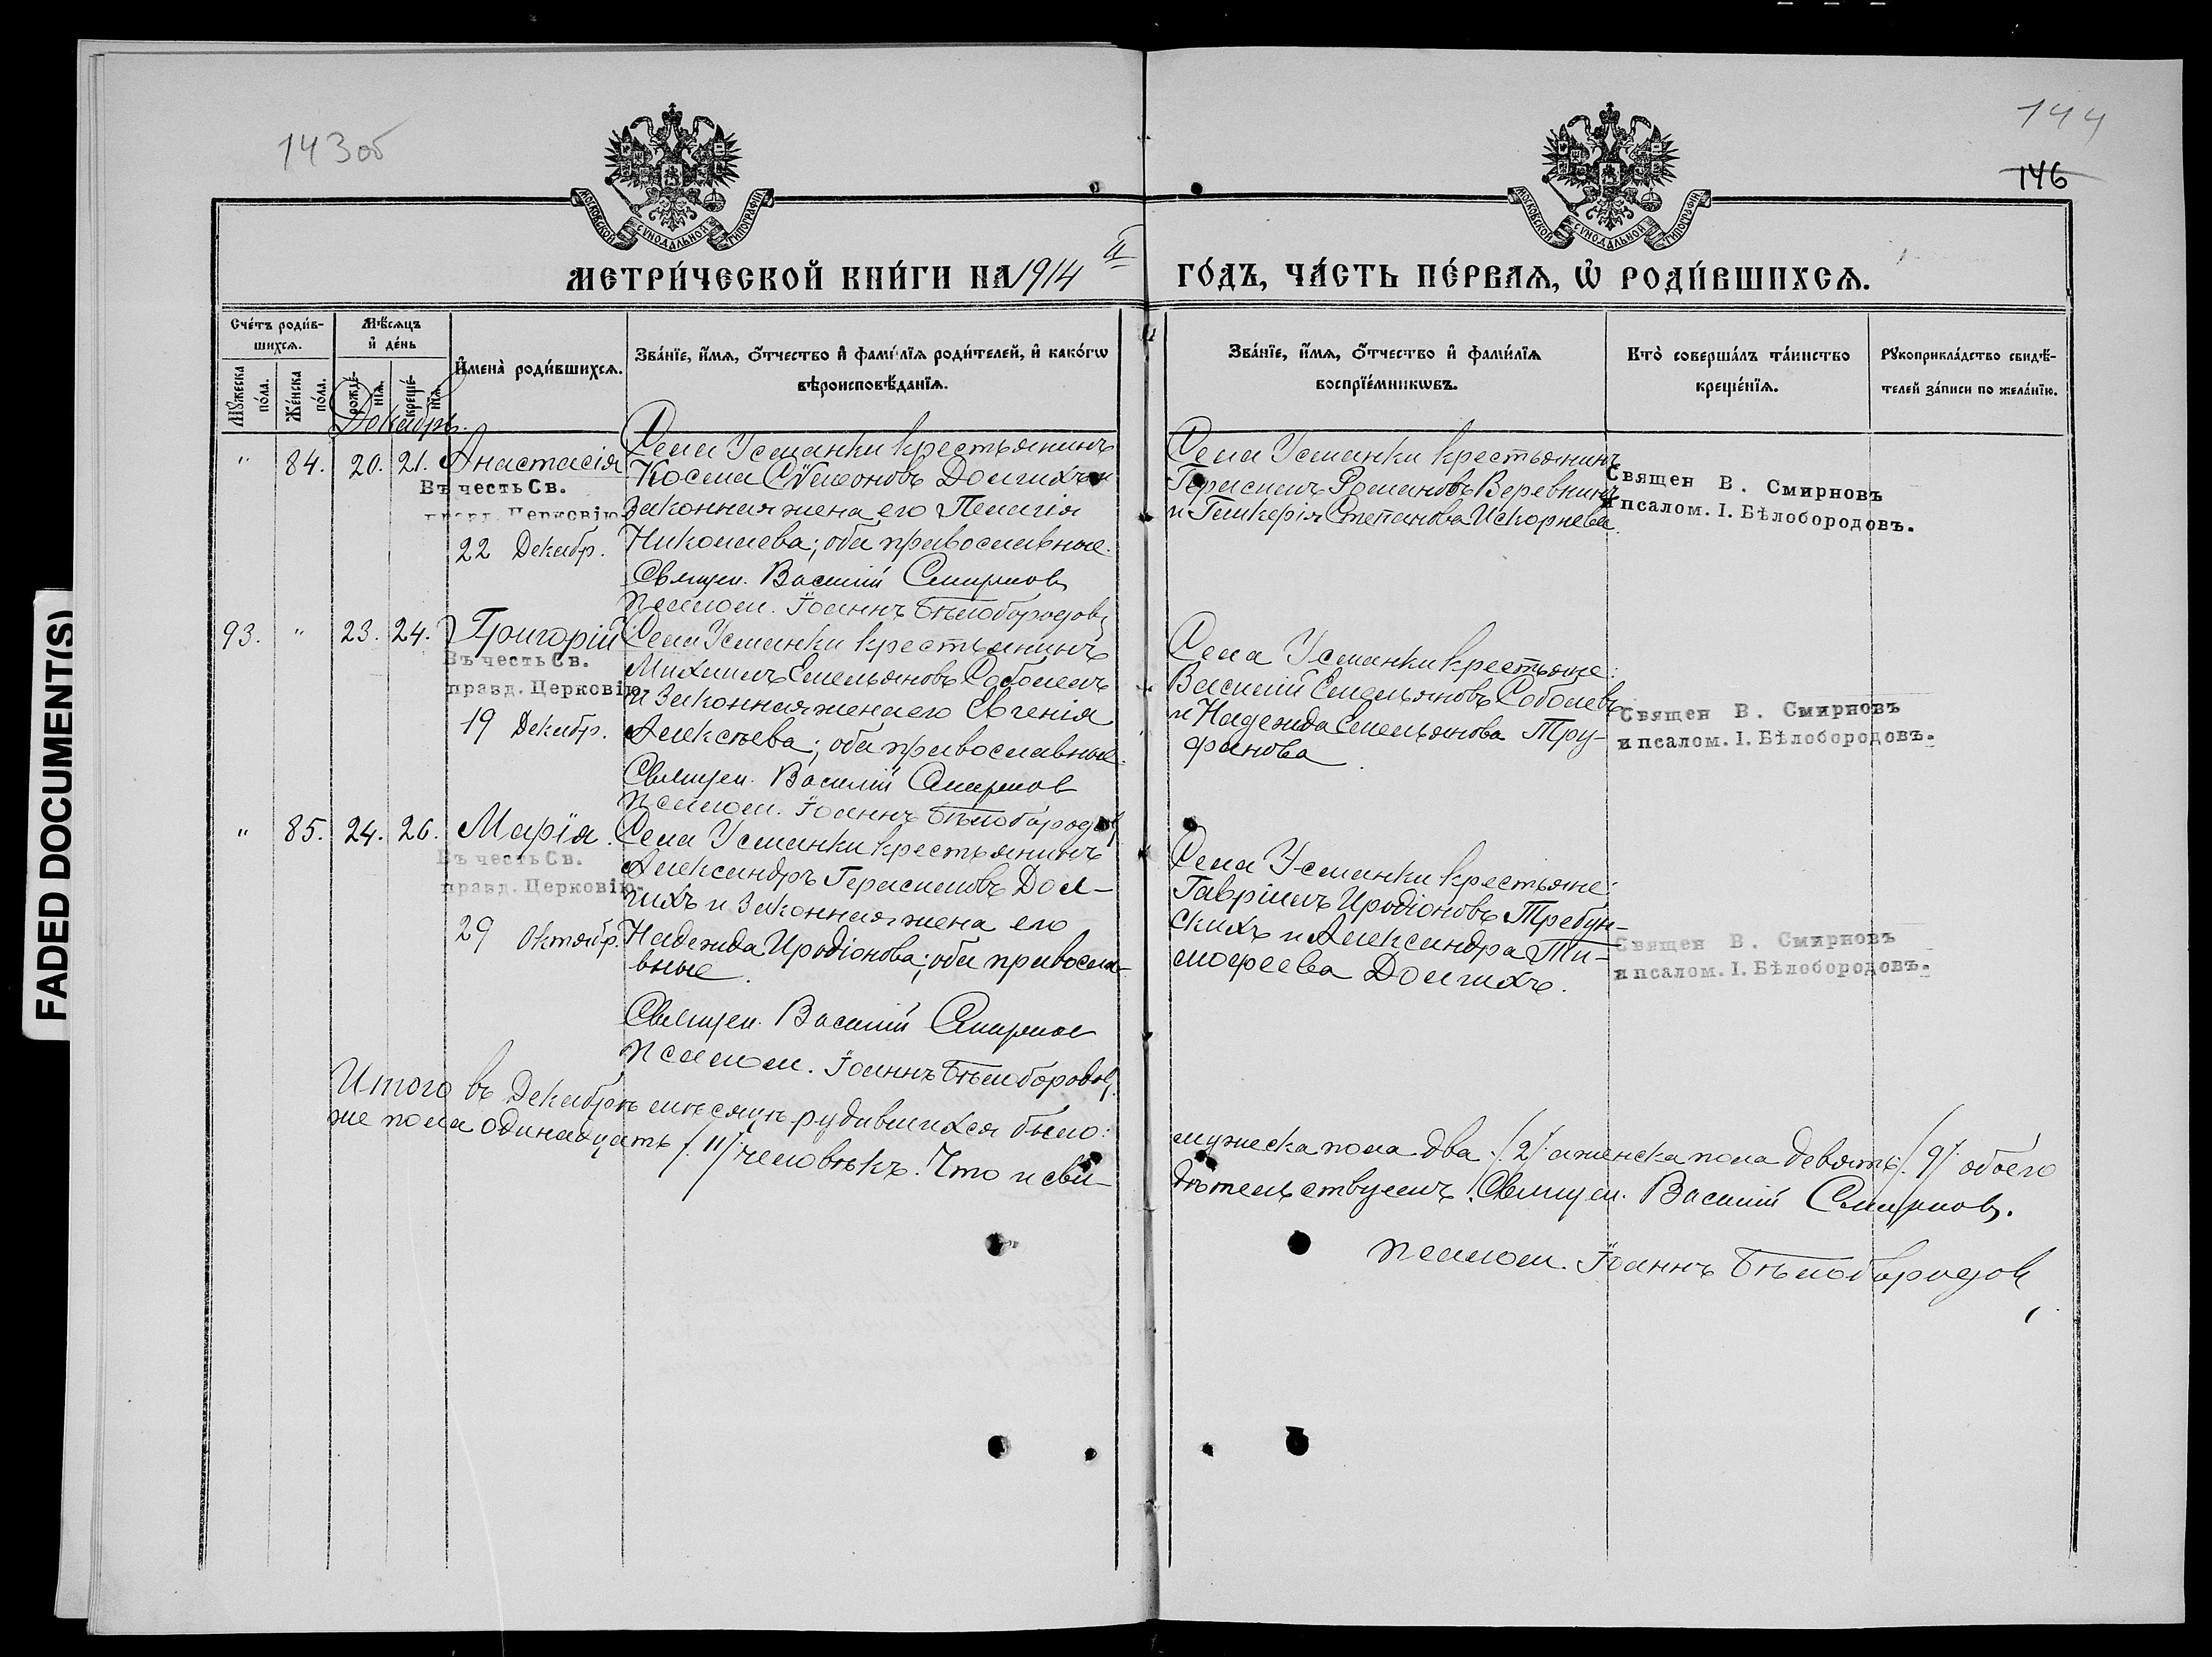 FADED DOCUMENT(S)
143об
144
146
МОСКОВСКОЙ СѴНОДАЛЬНОЙ ТИПОГРАФІИ
МОСКОВСКОЙ СѴНОДАЛЬНОЙ ТИПОГРАФІИ
МЕТРИ́ЧЕСКОЙ КНИ́ГИ НА 1914
ГО́ДЪ, ЧА́СТЬ ПЕ́РВАѦ, Ѡ҆ РОДИ́ВШИХСѦ.
Сче́тъ роди́в-
шихсѧ.
Мѣ́сѧцъ
и҆ де́нь
Мꙋ́жеска по́ла.
Же́нска по́ла.
рожде́-нїѧ.
креще́-нїѧ.
И҆мена̀ роди́вшихсѧ.
Зва́нїе, и҆́мѧ, ѻ҆́тчество и҆ фамі́лїѧ роди́телей, и҆ како́гѡ
вѣроисповѣ́данїѧ.
Зва́нїе, и҆́мѧ, ѻ҆́тчество и҆ фамі́лїѧ
воспрїе́мникѡвъ.
Кто̀ соверша́лъ та́инство
креще́нїѧ.
Рꙋкоприкла́дство свидѣ́-
телей за́писи по жела́нїю.
Декабрь.
" 84. 20. 21. Анастасія
Въ честь Св.
правд. Церковію
22 Декабр.
Села Усманки крестьянинъ
Косма Сѵмеоновъ Долгихъ и
законная жена его Пелагія
Николаева; оба православные.
Священ. Василій Смирновъ
Псалом. Іоаннъ Бѣлобородовъ
Села Усманки крестьянинъ
Герасимъ Романовъ Веревкинъ
и Гликерія Степанова Искорнева.
Священ В. Смирновъ
и псалом. І. Бѣлобородовъ.
93. " 23. 24. Григорій
Въ честь Св.
правд. Церковію
19 Декабр.
Села Усманки крестьянинъ
Михаилъ Емельяновъ Соболевъ
и законная жена его Евгенія
Алексѣева; оба православные.
Священ. Василій Смирнов
Псалом. Іоаннъ Бѣлобородовъ
Села Усманки крестьяне:
Василій Емельяновъ Соболевъ
и Надежда Емельянова Тру-
фанова.
Священ В. Смирновъ
и псалом. І. Бѣлобородовъ.
" 85. 24. 26. Марія.
Въ честь Св.
правд. Церковію.
29 Октябр.
Села Усманки крестьянинъ
Александръ Герасимовъ Дол-
гихъ и законная жена его
Надежда Иродіонова; оба правосла-
вные.
Священ. Василій Смирнов
Псалом. Іоаннъ Бѣлобородовъ.
Села Усманки крестьяне:
Гавріилъ Иродіоновъ Требун-
скихъ и Александра Ти-
мофеева Долгихъ.
Священ В. Смирновъ
и псалом. І. Бѣлобородовъ.
Итого въ Декабрѣ мѣсяцѣ родившихся было:
мужеска пола два /2/ а женска пола девять /9/ обоего
же пола одинадцать /11/ человѣкъ. Что и сви-
дѣтельствуемъ. Священ. Василій Смирновъ.
Псалом. Іоаннъ Бѣлобородовъ